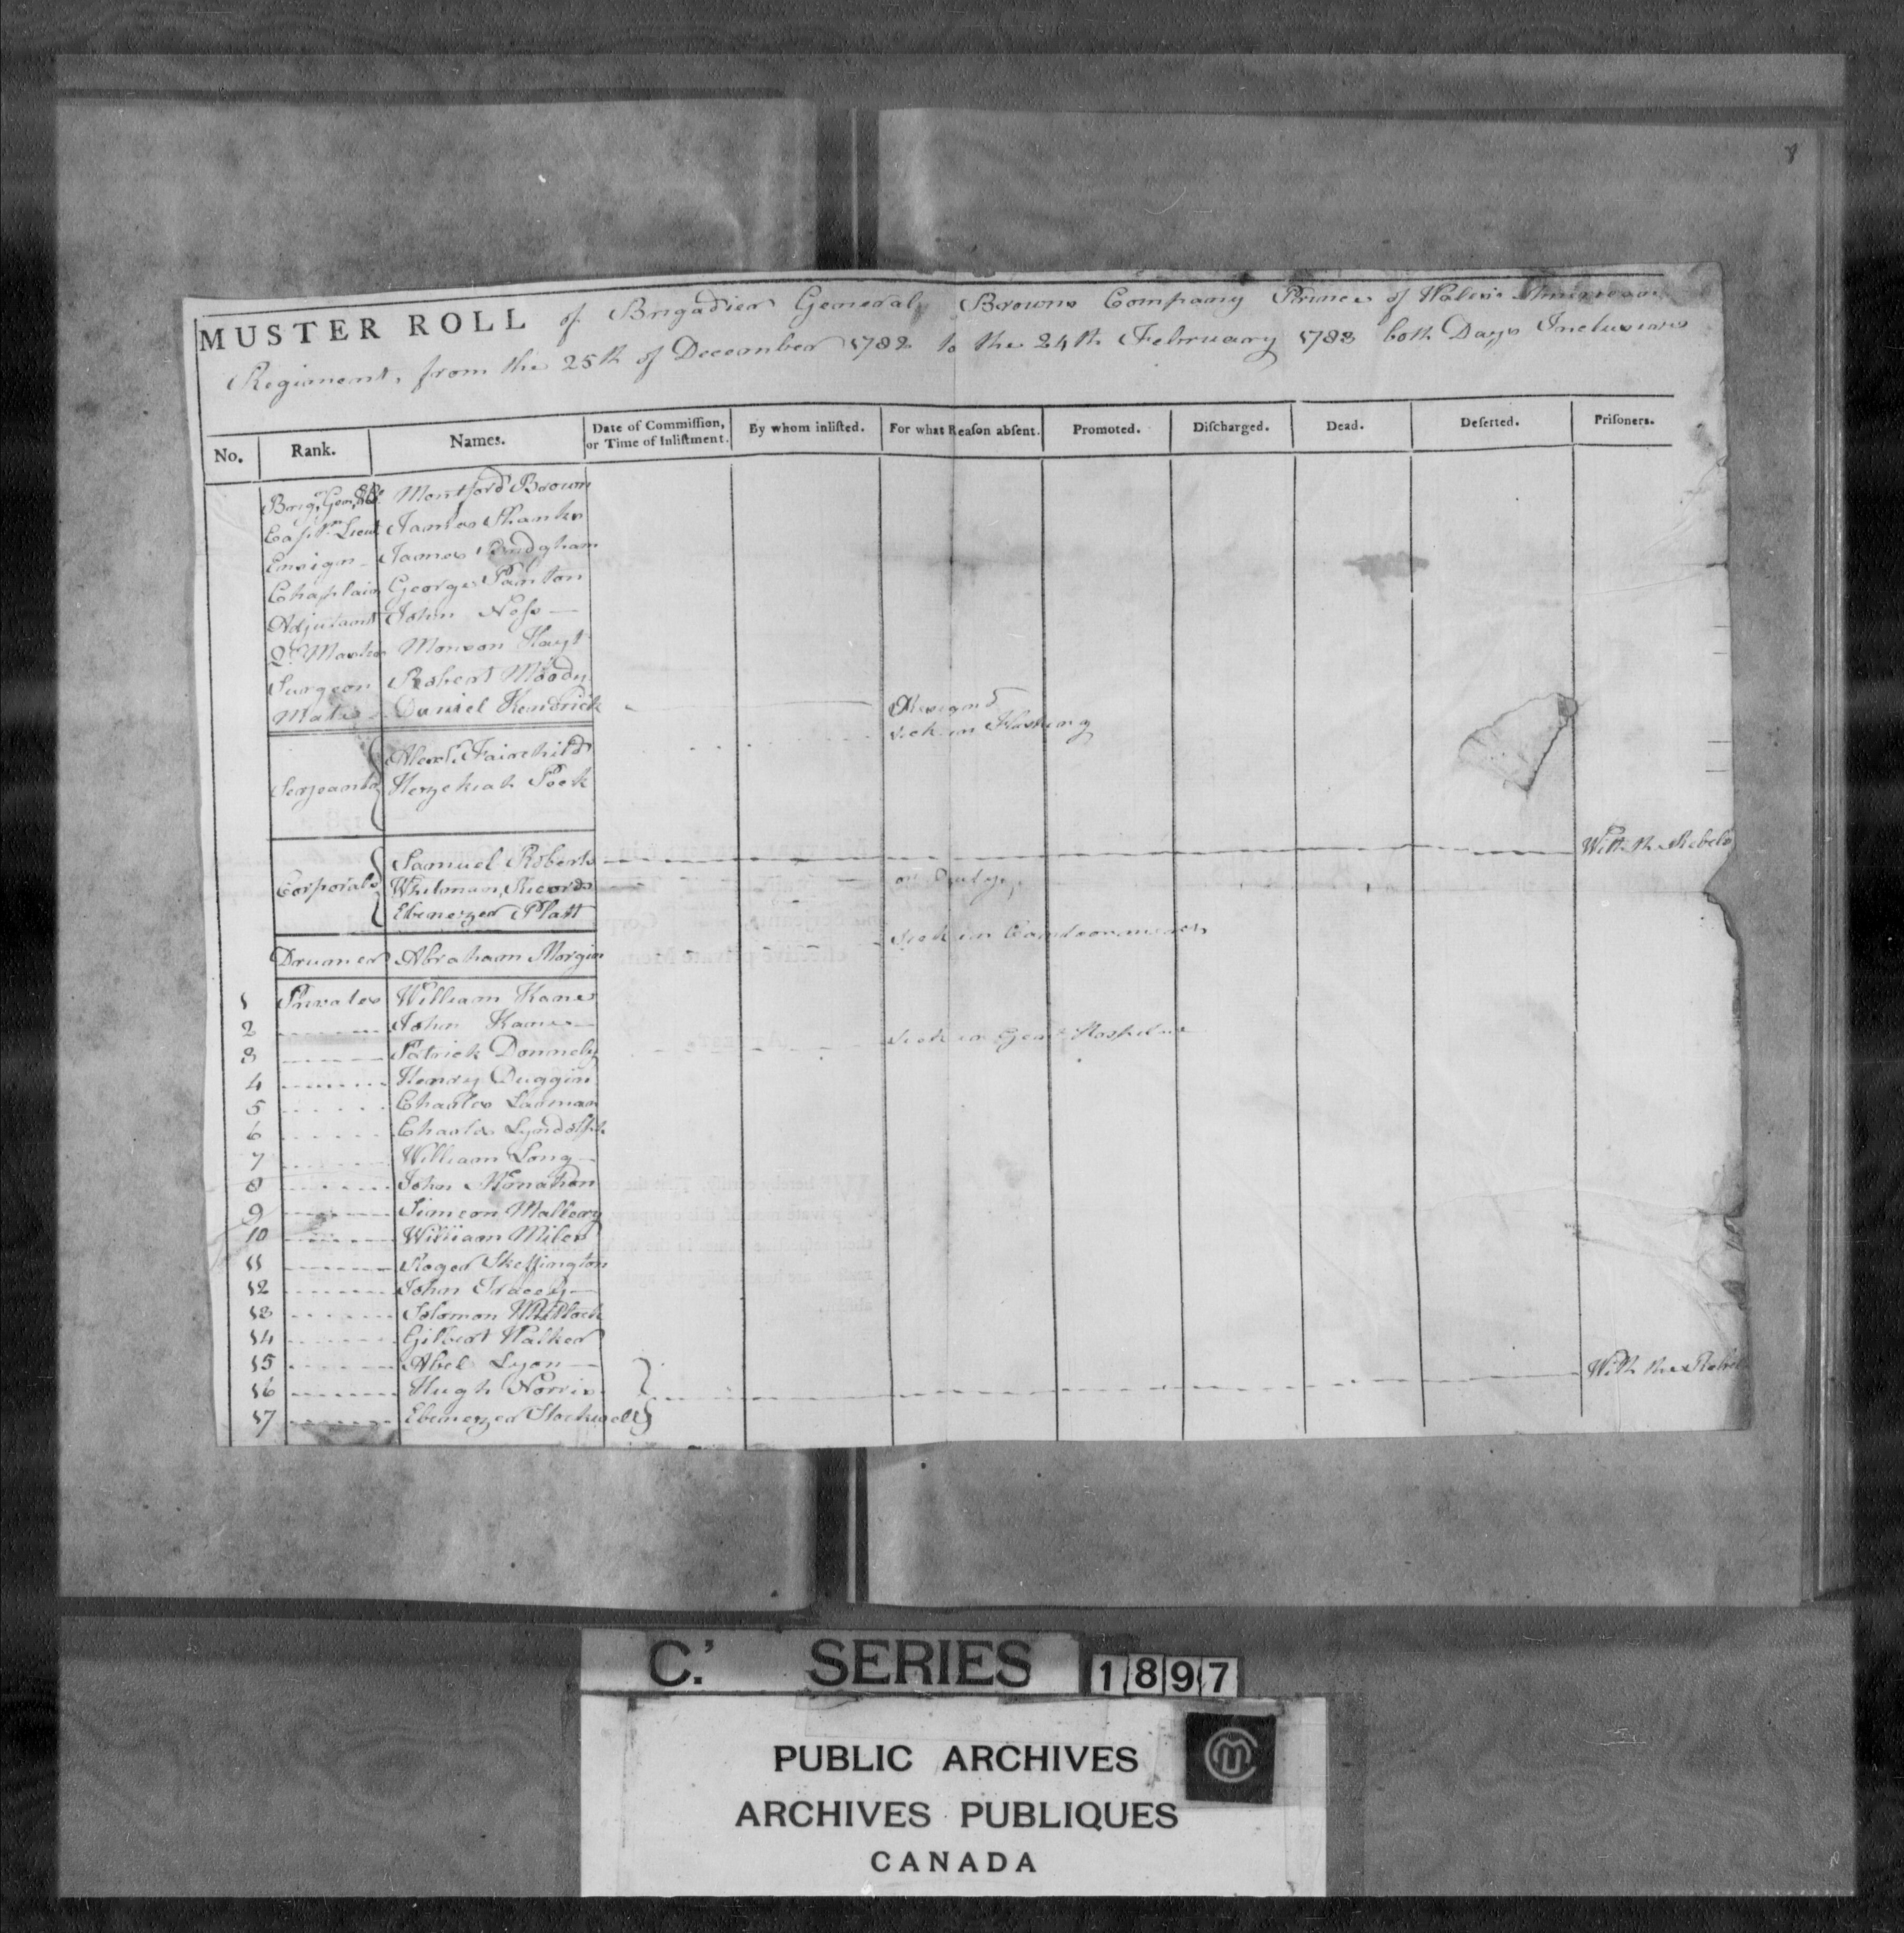 8
MUSTER ROLL of Brigadier General Browns Company Prince of Wales's American
Regiment, from the 25th of December 1782 to the 24th February 1783 both Days Inclusive
No. Rank. Names. Date of Commission, or Time of Inlistment. By whom inlisted. For what Reason absent. Promoted. Discharged. Dead. Deserted. Prisoners.
Brigr. Genl. Montford Brown
Capt. Lieut James Shanks
Ensign James Budgham
Chaplain George Panton
Adjutant John Ness
Qr. Master Monson Hayt
Surgeon Robert Moody
Mate Daniel Kendrick Resignd
Serjeants Alexr. Fairchild sick in Flushing
Hezekiah Peck
Corporals Samuel Roberts With the Rebels
Whitman Records on Duty
Ebenezer Platt
Drumer Abraham Morgin Sick in Cantoonments
1 Privates William Kane
2 John Kane
3 Patrick Donnely Sick in Genl. Hospital
4 Henry Duggin
5 Charles Larman
6 Charles Lyndolph
7 William Long
8 John Monahan
9 Simeon Mallery
10 William Miles
11 Roger Skeffington
12 John Tracey
13 Solomon Whitlock
14 Gilbert Walker
15 Abel Lyon
16 Hugh Norris With the Rebels
17 Ebenezer Stockwell
C.' SERIES 1897
PUBLIC ARCHIVES
ARCHIVES PUBLIQUES
CANADA